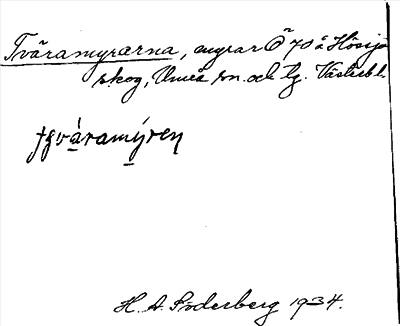 Tväramyrarna, myrar Ö 70 å Hössjö
skog, Umeå sn. och tg. Västerb l.
tgvàramýren
H. A. Söderberg 1934.